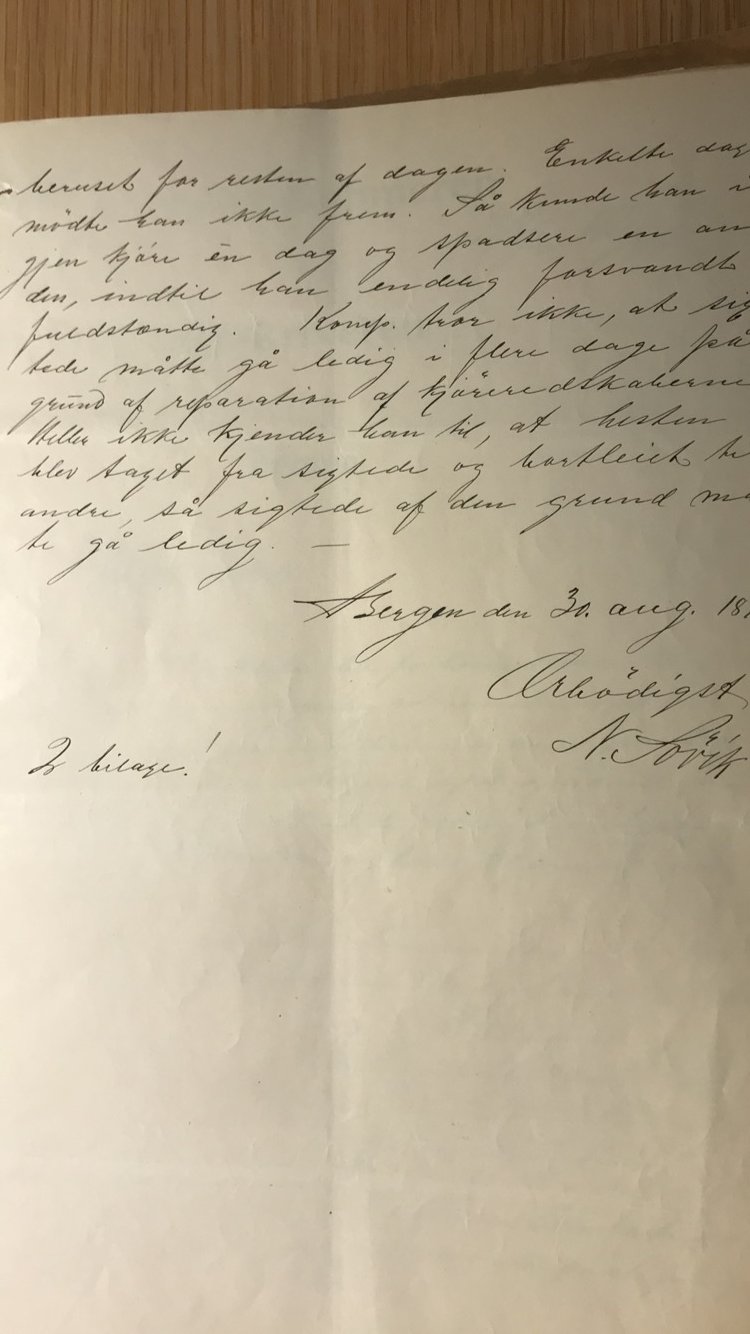 beruset for resten af dagen. Enkelte dag
mödte han ikke frem. Så kunde han i
gjen kjöre én dag og spadsere en an
den, indtil han endelig forsvandt
fuldstændig. Komp. tror ikke, at sig
tede måtte gå ledig i flere dage på
grund af reparation af kjöreredskaberne
Heller ikke kjender han til, at hesten
blev taget fra sigtede og bortleiet te
andre, så sigtede af den grund må
te gå ledig. —
Bergen den 30. aug. 18
Ærbödigst
N. Sövik
2 bilage!